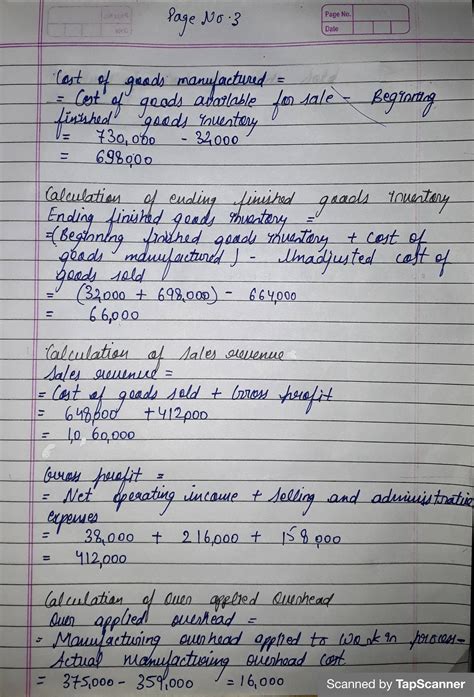 Page No. 3
Page No.
Date
Cost of goods manufactured =
= Cost of goods available for sale - Beginning
finished goods inventory
= 730,000 - 32,000
= 698,000
Calculation of ending finished goods inventory
Ending finished goods inventory =
=(Beginning finished goods inventory + Cost of
goods manufactured) - Unadjusted cost of
goods sold
= (32,000 + 698,000) - 664,000
= 66,000
Calculation of sales revenue
Sales revenue =
= Cost of goods sold + Gross profit
= 648,000 + 412,000
= 1,0,60,000
Gross profit =
= Net operating income + selling and administration
expenses
= 38,000 + 216,000 + 158,000
= 412,000
Calculation of Over applied Overhead
Over applied overhead =
= Manufacturing overhead applied to work in process-
Actual manufacturing overhead cost
= 375,000 - 359,000 = 16,000
Scanned by TapScanner